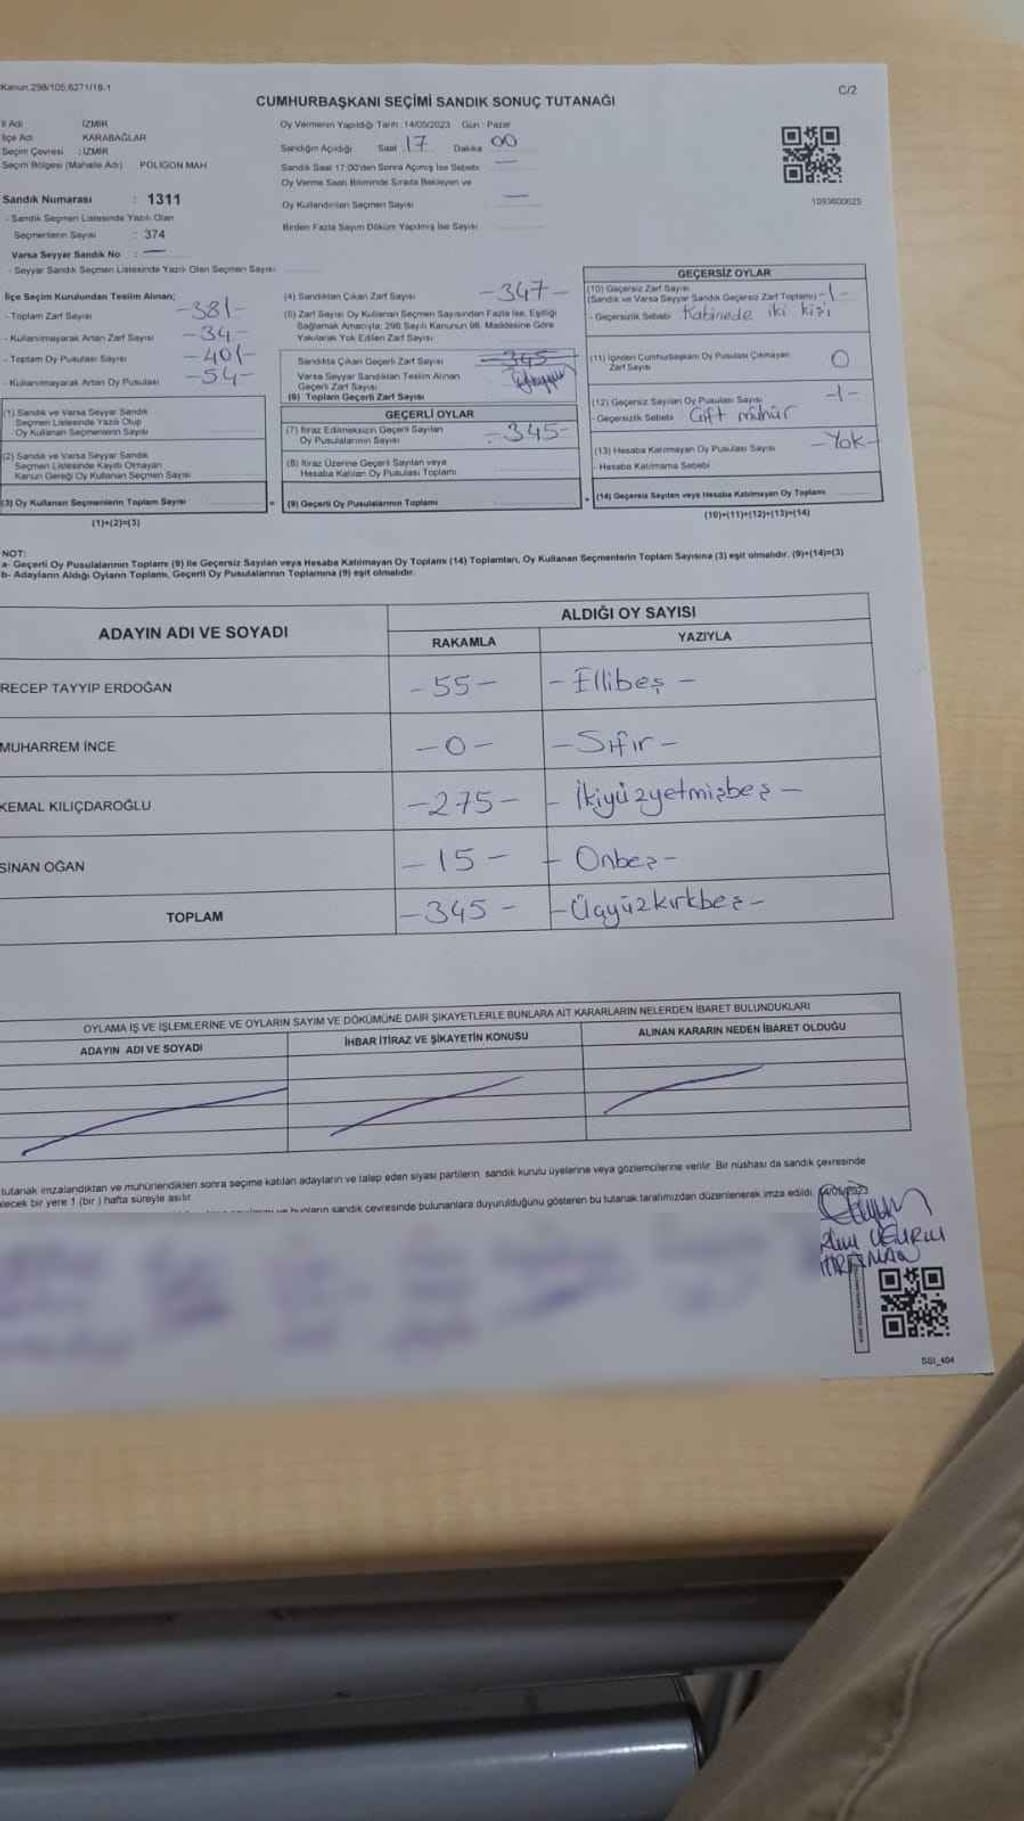 Kanun:298/105,6271/18-1
C/2
CUMHURBAŞKANI SEÇİMİ SANDIK SONUÇ TUTANAĞI
İl Adı : İZMİR
İlçe Adı : KARABAĞLAR
Seçim Çevresi : İZMİR
Seçim Bölgesi (Mahalle Adı) POLİGON MAH
Oy Vermenin Yapıldığı Tarih :14/05/2023 Gün : Pazar
Sandığın Açıldığı Saat 17 Dakika 00
Sandık Saat 17:00'den Sonra Açılmış İse Sebebi
Oy Verme Saati Bitiminde Sırada Bekleyen ve
Oy Kullandırılan Seçmen Sayısı
Birden Fazla Sayım Döküm Yapılmış İse Sayısı
1093600025
Sandık Numarası : 1311
- Sandık Seçmen Listesinde Yazılı Olan
Seçmenlerin Sayısı : 374
Varsa Seyyar Sandık No : —
- Seyyar Sandık Seçmen Listesinde Yazılı Olan Seçmen Sayısı
İlçe Seçim Kurulundan Teslim Alınan;
- Toplam Zarf Sayısı -381-
- Kullanılmayarak Artan Zarf Sayısı -34-
- Toplam Oy Pusulası Sayısı -401-
- Kullanılmayarak Artan Oy Pusulası -54-
(1) Sandık ve Varsa Seyyar Sandık
Seçmen Listesinde Yazılı Olup
Oy Kullanan Seçmenlerin Sayısı
(2) Sandık ve Varsa Seyyar Sandık
Seçmen Listesinde Kayıtlı Olmayan
Kanun Gereği Oy Kullanan Seçmen Sayısı
(3) Oy Kullanan Seçmenlerin Toplam Sayısı
(1)+(2)=(3)
(4) Sandıktan Çıkan Zarf Sayısı -347-
(5) Zarf Sayısı Oy Kullanan Seçmen Sayısından Fazla İse, Eşitliği
Sağlamak Amacıyla, 298 Sayılı Kanunun 98. Maddesine Göre
Yakılarak Yok Edilen Zarf Sayısı
Sandıkta Çıkan Geçerli Zarf Sayısı -345-
Varsa Seyyar Sandıktan Teslim Alınan
Geçerli Zarf Sayısı
(6) Toplam Geçerli Zarf Sayısı
GEÇERLİ OYLAR
(7) İtiraz Edilmeksizin Geçerli Sayılan
Oy Pusulalarının Sayısı -345-
(8) İtiraz Üzerine Geçerli Sayılan veya
Hesaba Katılan Oy Pusulası Toplamı
= (9) Geçerli Oy Pusulalarının Toplamı
GEÇERSİZ OYLAR
(10) Geçersiz Zarf Sayısı
(Sandık ve Varsa Seyyar Sandık Geçersiz Zarf Toplamı) -1-
- Geçersizlik Sebebi Kabinede iki kişi
(11) İçinden Cumhurbaşkanı Oy Pusulası Çıkmayan
Zarf Sayısı 0
(12) Geçersiz Sayılan Oy Pusulası Sayısı -1-
- Geçersizlik Sebebi Çift mühür
(13) Hesaba Katılmayan Oy Pusulası Sayısı -Yok-
- Hesaba Katılmama Sebebi
+ (14) Geçersiz Sayılan veya Hesaba Katılmayan Oy Toplamı
(10)+(11)+(12)+(13)=(14)
NOT:
a- Geçerli Oy Pusulalarının Toplamı (9) ile Geçersiz Sayılan veya Hesaba Katılmayan Oy Toplamı (14) Toplamları, Oy Kullanan Seçmenlerin Toplam Sayısına (3) eşit olmalıdır. (9)+(14)=(3)
b- Adayların Aldığı Oyların Toplamı, Geçerli Oy Pusulalarının Toplamına (9) eşit olmalıdır.
ADAYIN ADI VE SOYADI
ALDIĞI OY SAYISI
RAKAMLA YAZIYLA
RECEP TAYYIP ERDOĞAN -55- -Ellibeş-
MUHARREM İNCE -0- -Sıfır-
KEMAL KILIÇDAROĞLU -275- - İkiyüzyetmişbeş -
SİNAN OĞAN -15- - Onbeş-
TOPLAM -345- -Üçyüzkırkbeş-
OYLAMA İŞ VE İŞLEMLERİNE VE OYLARIN SAYIM VE DÖKÜMÜNE DAİR ŞİKAYETLERLE BUNLARA AİT KARARLARIN NELERDEN İBARET BULUNDUKLARI
ADAYIN ADI VE SOYADI
İHBAR İTİRAZ VE ŞİKAYETİN KONUSU
ALINAN KARARIN NEDEN İBARET OLDUĞU
tutanak imzalandıktan ve mühürlendikten sonra seçime katılan adayların ve talep eden siyasi partilerin, sandık kurulu üyelerine veya gözlemcilerine verilir. Bir nüshası da sandık çevresinde
ecek bir yere 1 (bir ) hafta süreyle asılır.
ve bunların sandık çevresinde bulunanlara duyurulduğunu gösteren bu tutanak tarafımızdan düzenlenerek imza edildi.
SSI_404